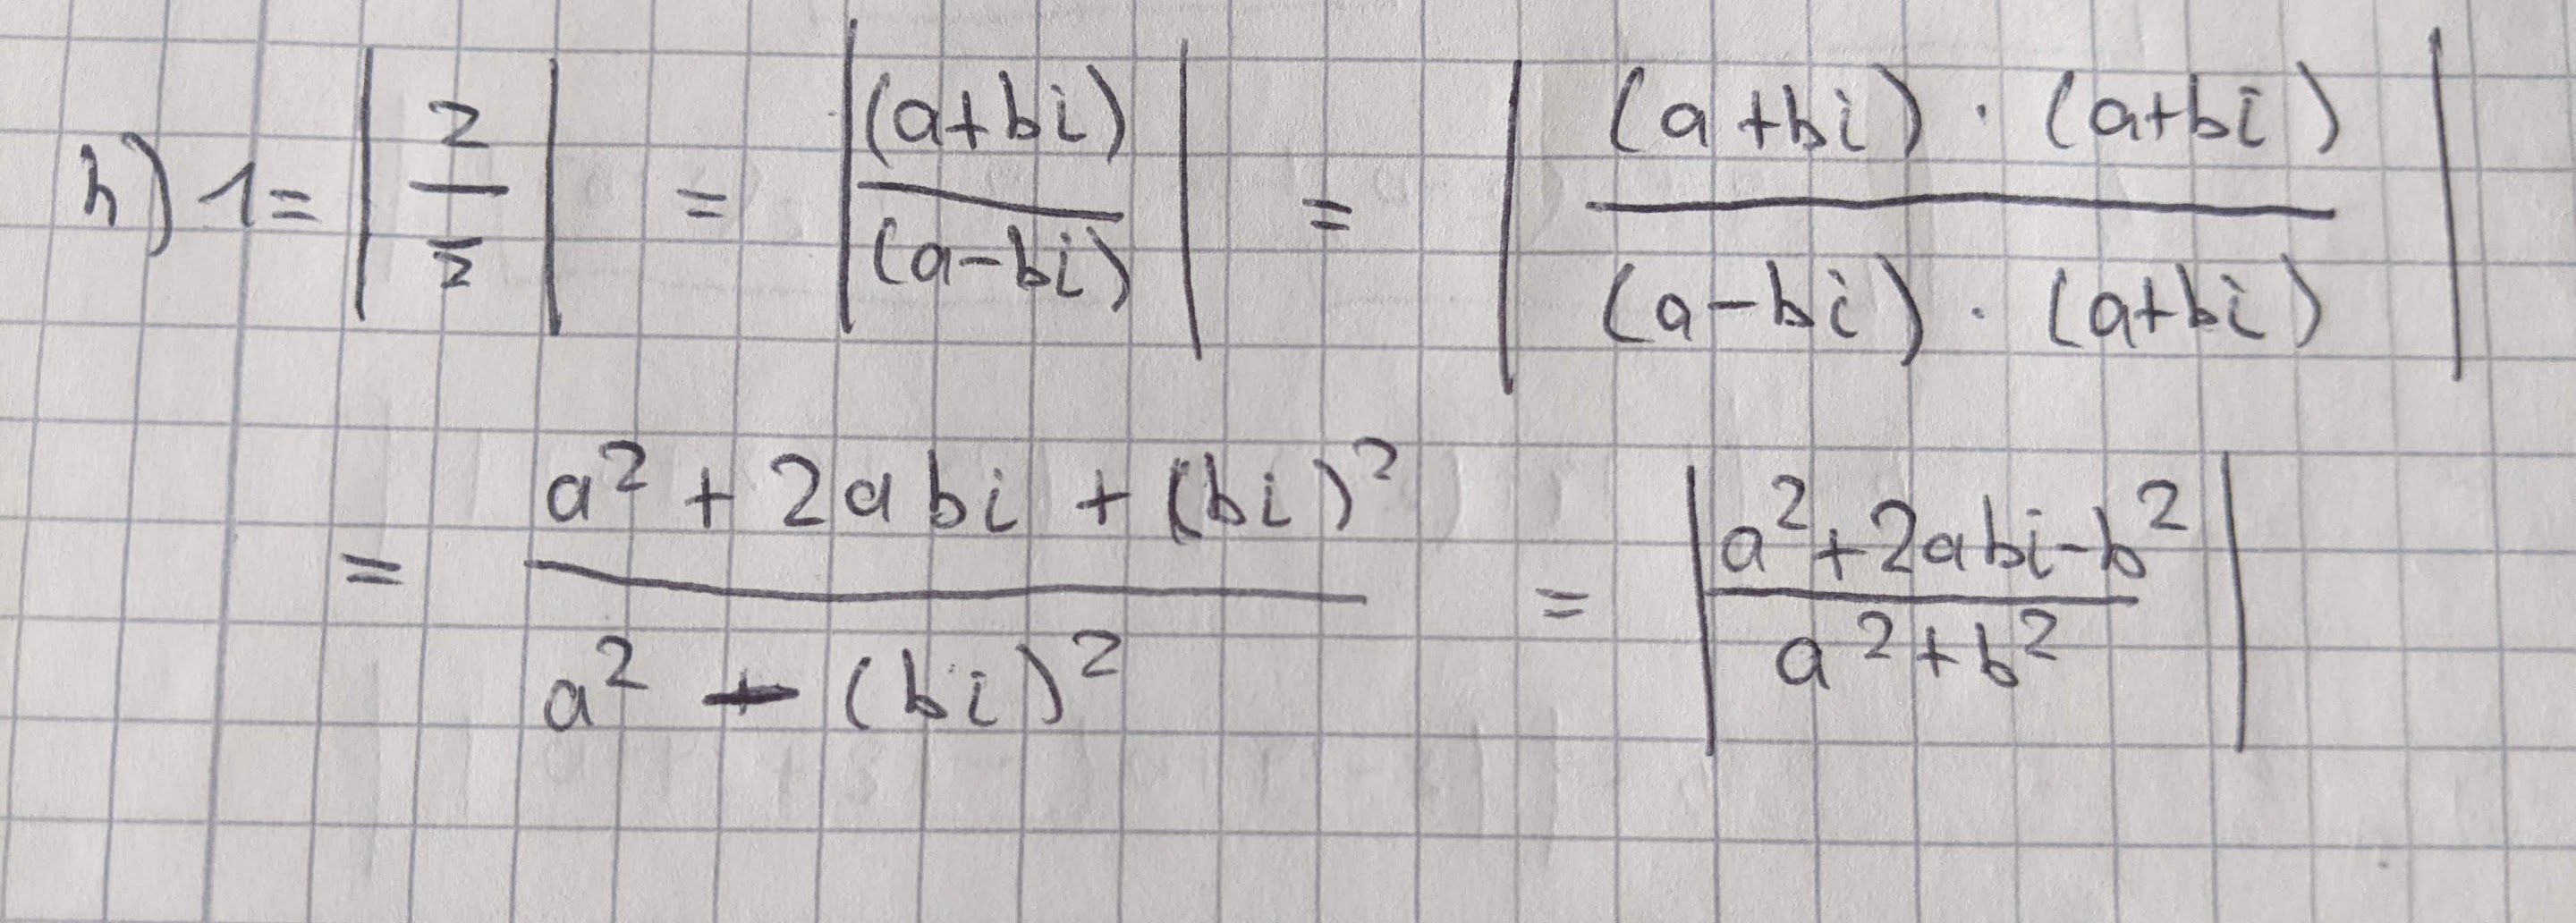 h) 1 = |z / z̄| = |(a+bi) / (a-bi)| = |(a+bi) · (a+bi) / (a-bi) · (a+bi)|
= a² + 2abi + (bi)² / a² - (bi)² = |a²+2abi-b² / a²+b²|